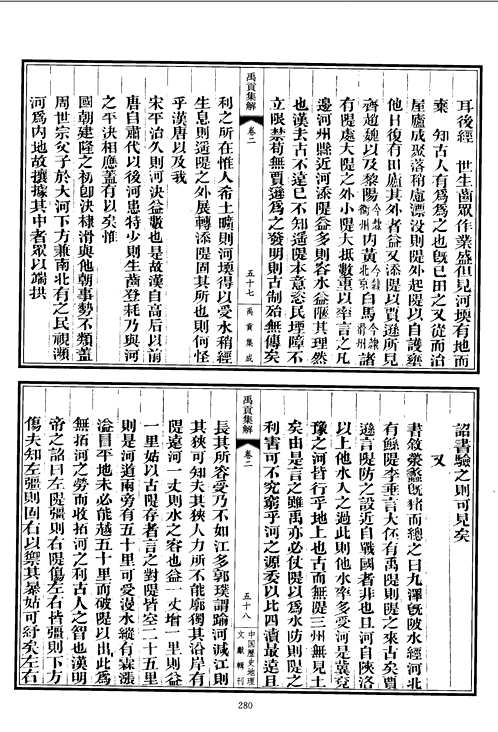 耳後經　世生齒眾作業盛但見河堧有地而
棄　知古人有為為之也旣已田之又從而治
屋廬成聚落稍處漂沒則隄外起隄以自護藥
他日復有田廬其外者益又添隄以賈遜所見
齊趙魏以及黎陽今隸衞州內黃今隸北京白馬今隸滑州諸
有隄處大隄之外小隄大抵數重以率言之凡
邊河州縣近河添隄益多則容水益隘其理然
也漢去古不遠已不知遥隄本意恣民堙障不
立限禁苟無賈遜為之發明則古制殆無傳矣
利之所在惟人希土曠則河堧得以受水稍經
生息則遥隄之外展轉添隄固其所也則何怪
乎漢唐以及我
宋平治久則河決益數也是故漢自高后以前
唐自肅代以後河患特少則生齒登耗乃與河
之平決相應蓋有以矣惟
國朝建隆之初卽決棣滑與他朝事勢不類蓋
周世宗父子於大河下方兼南北有之民視瀕
河爲內地故攘據其中者眾以端拱
禹貢集解
卷二
五十七
禹貢集成
詔書驗之則可見矣
又
書敘滎蠡旣豬而總之曰九澤旣陂水經河北
有餘隄李垂言大伾有禹隄則隄之來古矣賈
遜言隄防之設近自戰國者非也且河自陝洛
以上他水入之過此則他水率多受河是冀兗
豫之河皆行乎地上也古而無隄三州無見土
矣由是言之雖禹亦必仗隄以為水防則隄之
利害可不究窮乎河之源委以比四瀆最遠且
長其所容受乃不如江多郭璞謂踰河減江則
其狹可知夫其狹人力所不能廓獨其沿岸有
隄遠河一丈則水之容也益一丈增一里則益
一里姑以古隄存者言之對隄皆空二十五里
則是河道兩旁有五十里可受漫水縱有霖漲
溢目平地未必能越五十里而破隄以出此為
無拓河之勞而收拓河之利古人之智也漢明
帝之詔曰左隄彊則右隄傷左右皆彊則下方
傷夫知左彊則固右以禦其暴姑可紓矣左右
禹貢集解
卷二
五十八
中国歷史地理
文獻輯刊
280